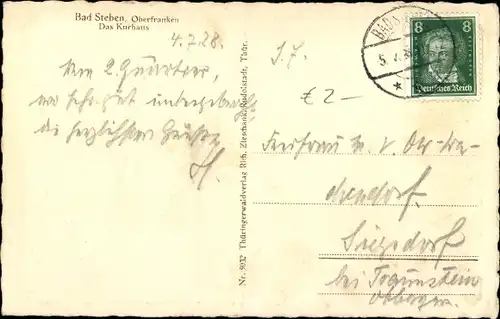 Bad Steben, Oberfranken
Das Kurhaus
4.7.28.
Vom 2. Quartier,
wo sehr gut
die herzlichsten Grüße
H.
Nr. 5032 Thüringerwaldverlag Rich. Zieschank, Rudolstadt, Thür.
£ 2-
BAD
5.7.
8 8
Deutsches Reich
Freifrau M. v. Ow-Wa-
chendorf.
Siegsdorf
bei Traunstein